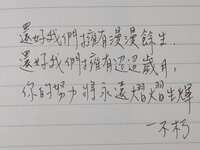 還好我們擁有漫漫餘生.
還好我們擁有迢迢歲月,
你的努力將永遠熠熠生輝
一不朽